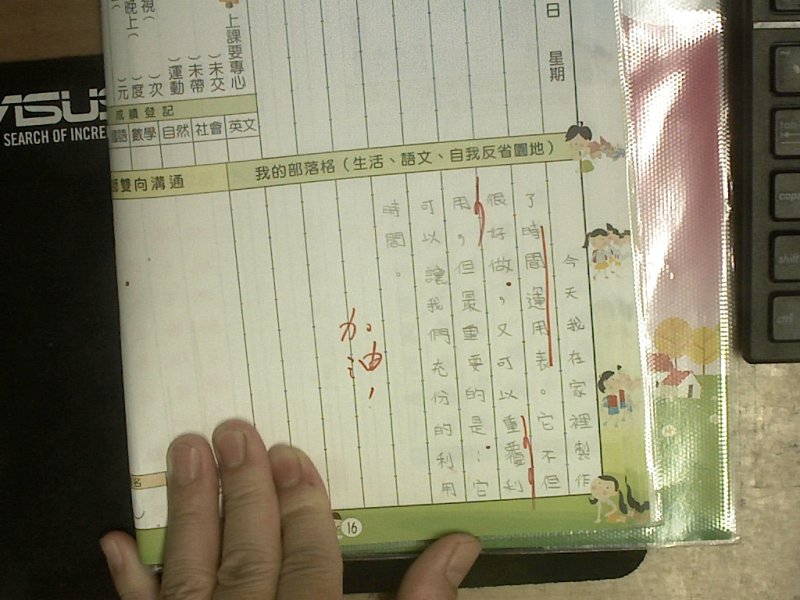 日 星期
上課要專心
（ ）未交
（ ）未帶
（ ）運動
（ ）次
（ ）度
（ ）元
視
晚上
成績登記
國語 數學 自然 社會 英文
師雙向溝通
我的部落格（生活、語文、自我反省園地）
今天我在家裡製作
了時間運用表。它不但
很好做，又可以重覆利
用，但最重要的是：它
可以讓我們充份的利用
時間。
加油！
名
16
ASUS
SEARCH OF INCRE
caps
shift
ctrl